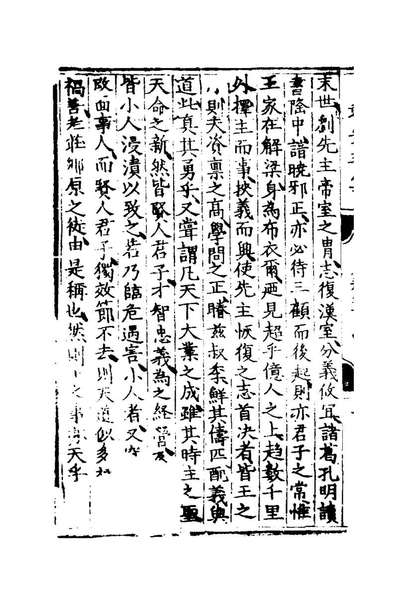 末世劉先主帝室之胄志復漢室分義攸宜諸葛孔明讀
書隆中諳晓邪正亦必待三顧而後起則亦君子之常惟
王家在解梁身為布衣爾廼見超乎億人之上趋數千里
外擇主而事挾義而興使先主恢復之志首决者皆王之
則夫資禀之高學問之正騰兹叔季鮮其儔匹配義與
道此真其勇乎又甞謂凡天下大業之成雖其時主之聖
天命之新然皆賢人君子才智忠義為之經營及
皆小人浸潰以致之若乃臨危遇害小人者又
改面事人而賢人君子獨效節不去則天道似多
福善老莊鄉原之徒由是稱也然則之事天乎